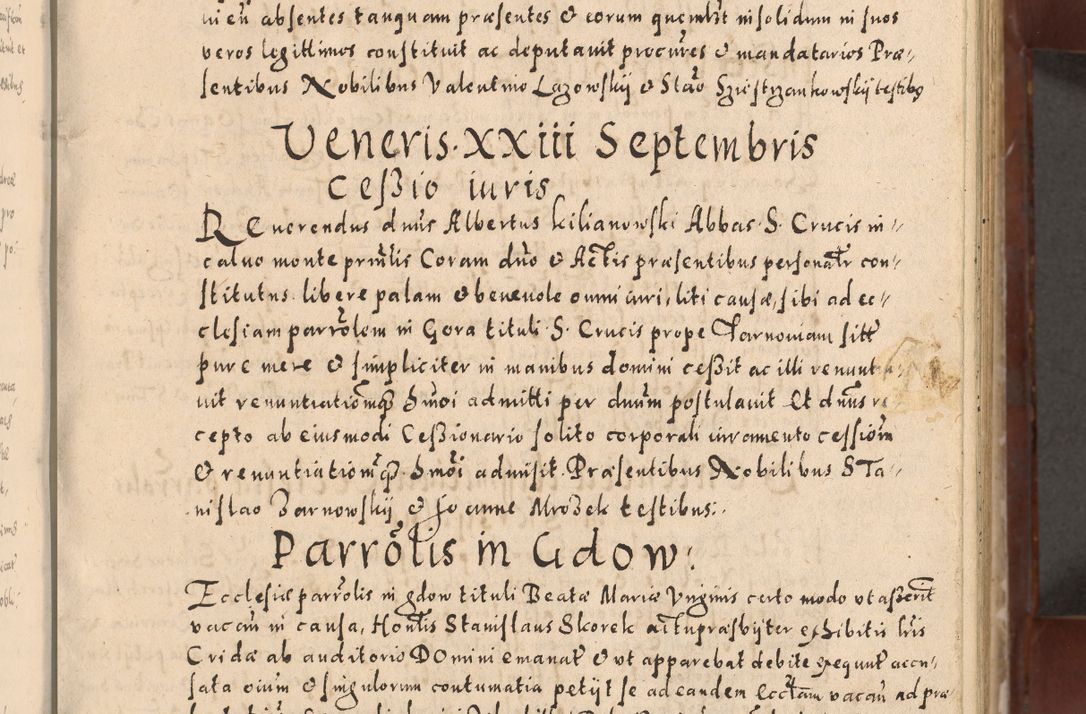 absentes tanquam præsentes & eorum quemlibet insolidum in suos
veros legittimos constituit ac deputavit procures & mandatarios Præ-
sentibus Nobilibus Valentino Lazowskij & Stão Szÿstrzankowskij testibus
Veneris XXiii Septembris
Ceßio iuris
Reuerendus dnus Albertus kilianowski Abbas S. Crucis in
caluo monte prntis Coram dno & Actis præsentibus personatr con-
stitutus libere palam & beneuole omni iuri, liti causæ, sibi ad ec-
clesiam parrolem in Gora tituli S. Crucis prope Tarnouiam sitt
pure mere & simpliciter in manibus domini ceßit ac illi renunt
uit renuntiationemq hmoi admitti per dnum postulauit Et dnus re
cepto ab eiusmodi Ceßionario solito corporali iuramento cessionem
& renuntiationemq hmoi admisit. Præsentibus Nobilibus Sta-
nislao Zarnowskij & Joanne Mrozek testibus.
Parrolis in Gdow.
Ecclesiæ parrolis in gdow tituli Beatæ Mariæ Virginis certo modo ut aßerit
vacan in causa, Hontis Stanislaus Skorek præsbijter exhibitis lris
Cridæ ab auditorio Domini emanat & ut apparebat debite exequut accu-
sata oium & singulorum contumatia petijt se ad eandem eccliam vacan ad præ-